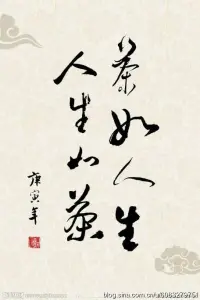 茶如人生
人生如茶
庚寅年
blog.sina.com.cn/u/6083279751